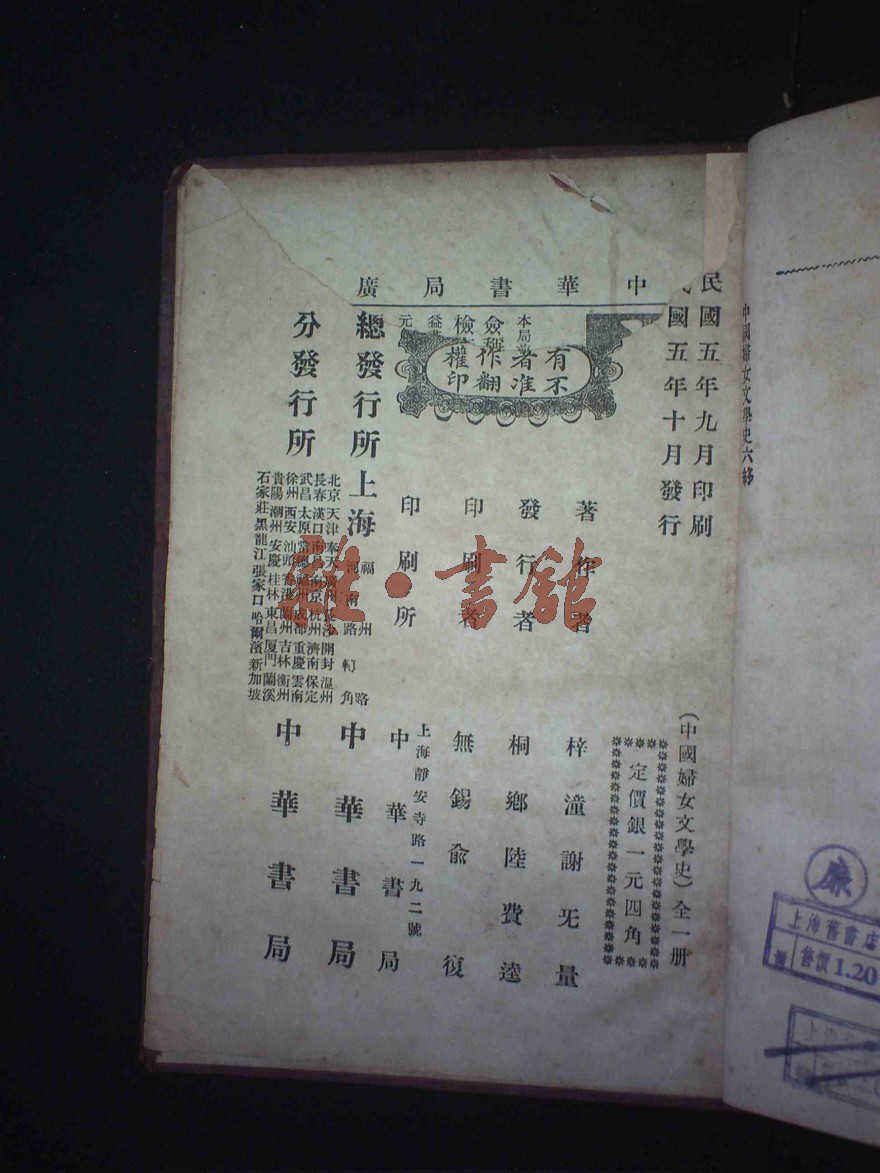 民國五年九月印刷
國五年十月發行
(中國婦女文學史)全一册
定價銀一元四角
中華書局廣
有著作權
不准翻印
著作者
梓潼謝无量
發行者
桐鄉陸費逵
印刷者
無錫俞復
印刷所
上海靜安寺路一九二號
中華書局
總發行所
上海
福州路
河南路
轉角
中華書局
分發行所
北京 天津 奉天 廣州 長沙 開封 溫州
長春 漢口 南昌 南京 杭州 濟南 保定
武昌 太原 常德 福州 成都 重慶 雲南
徐州 西安 汕頭 香港 蘭州 吉林 衡州
貴陽 潮州 安慶 桂林 東昌 厦門 蘭溪
石家莊 黑龍江 張家口 哈爾濱 新加坡
中華書局
中國婦女文學史六終
雅·書館
廉
上海舊書店
售價1.20